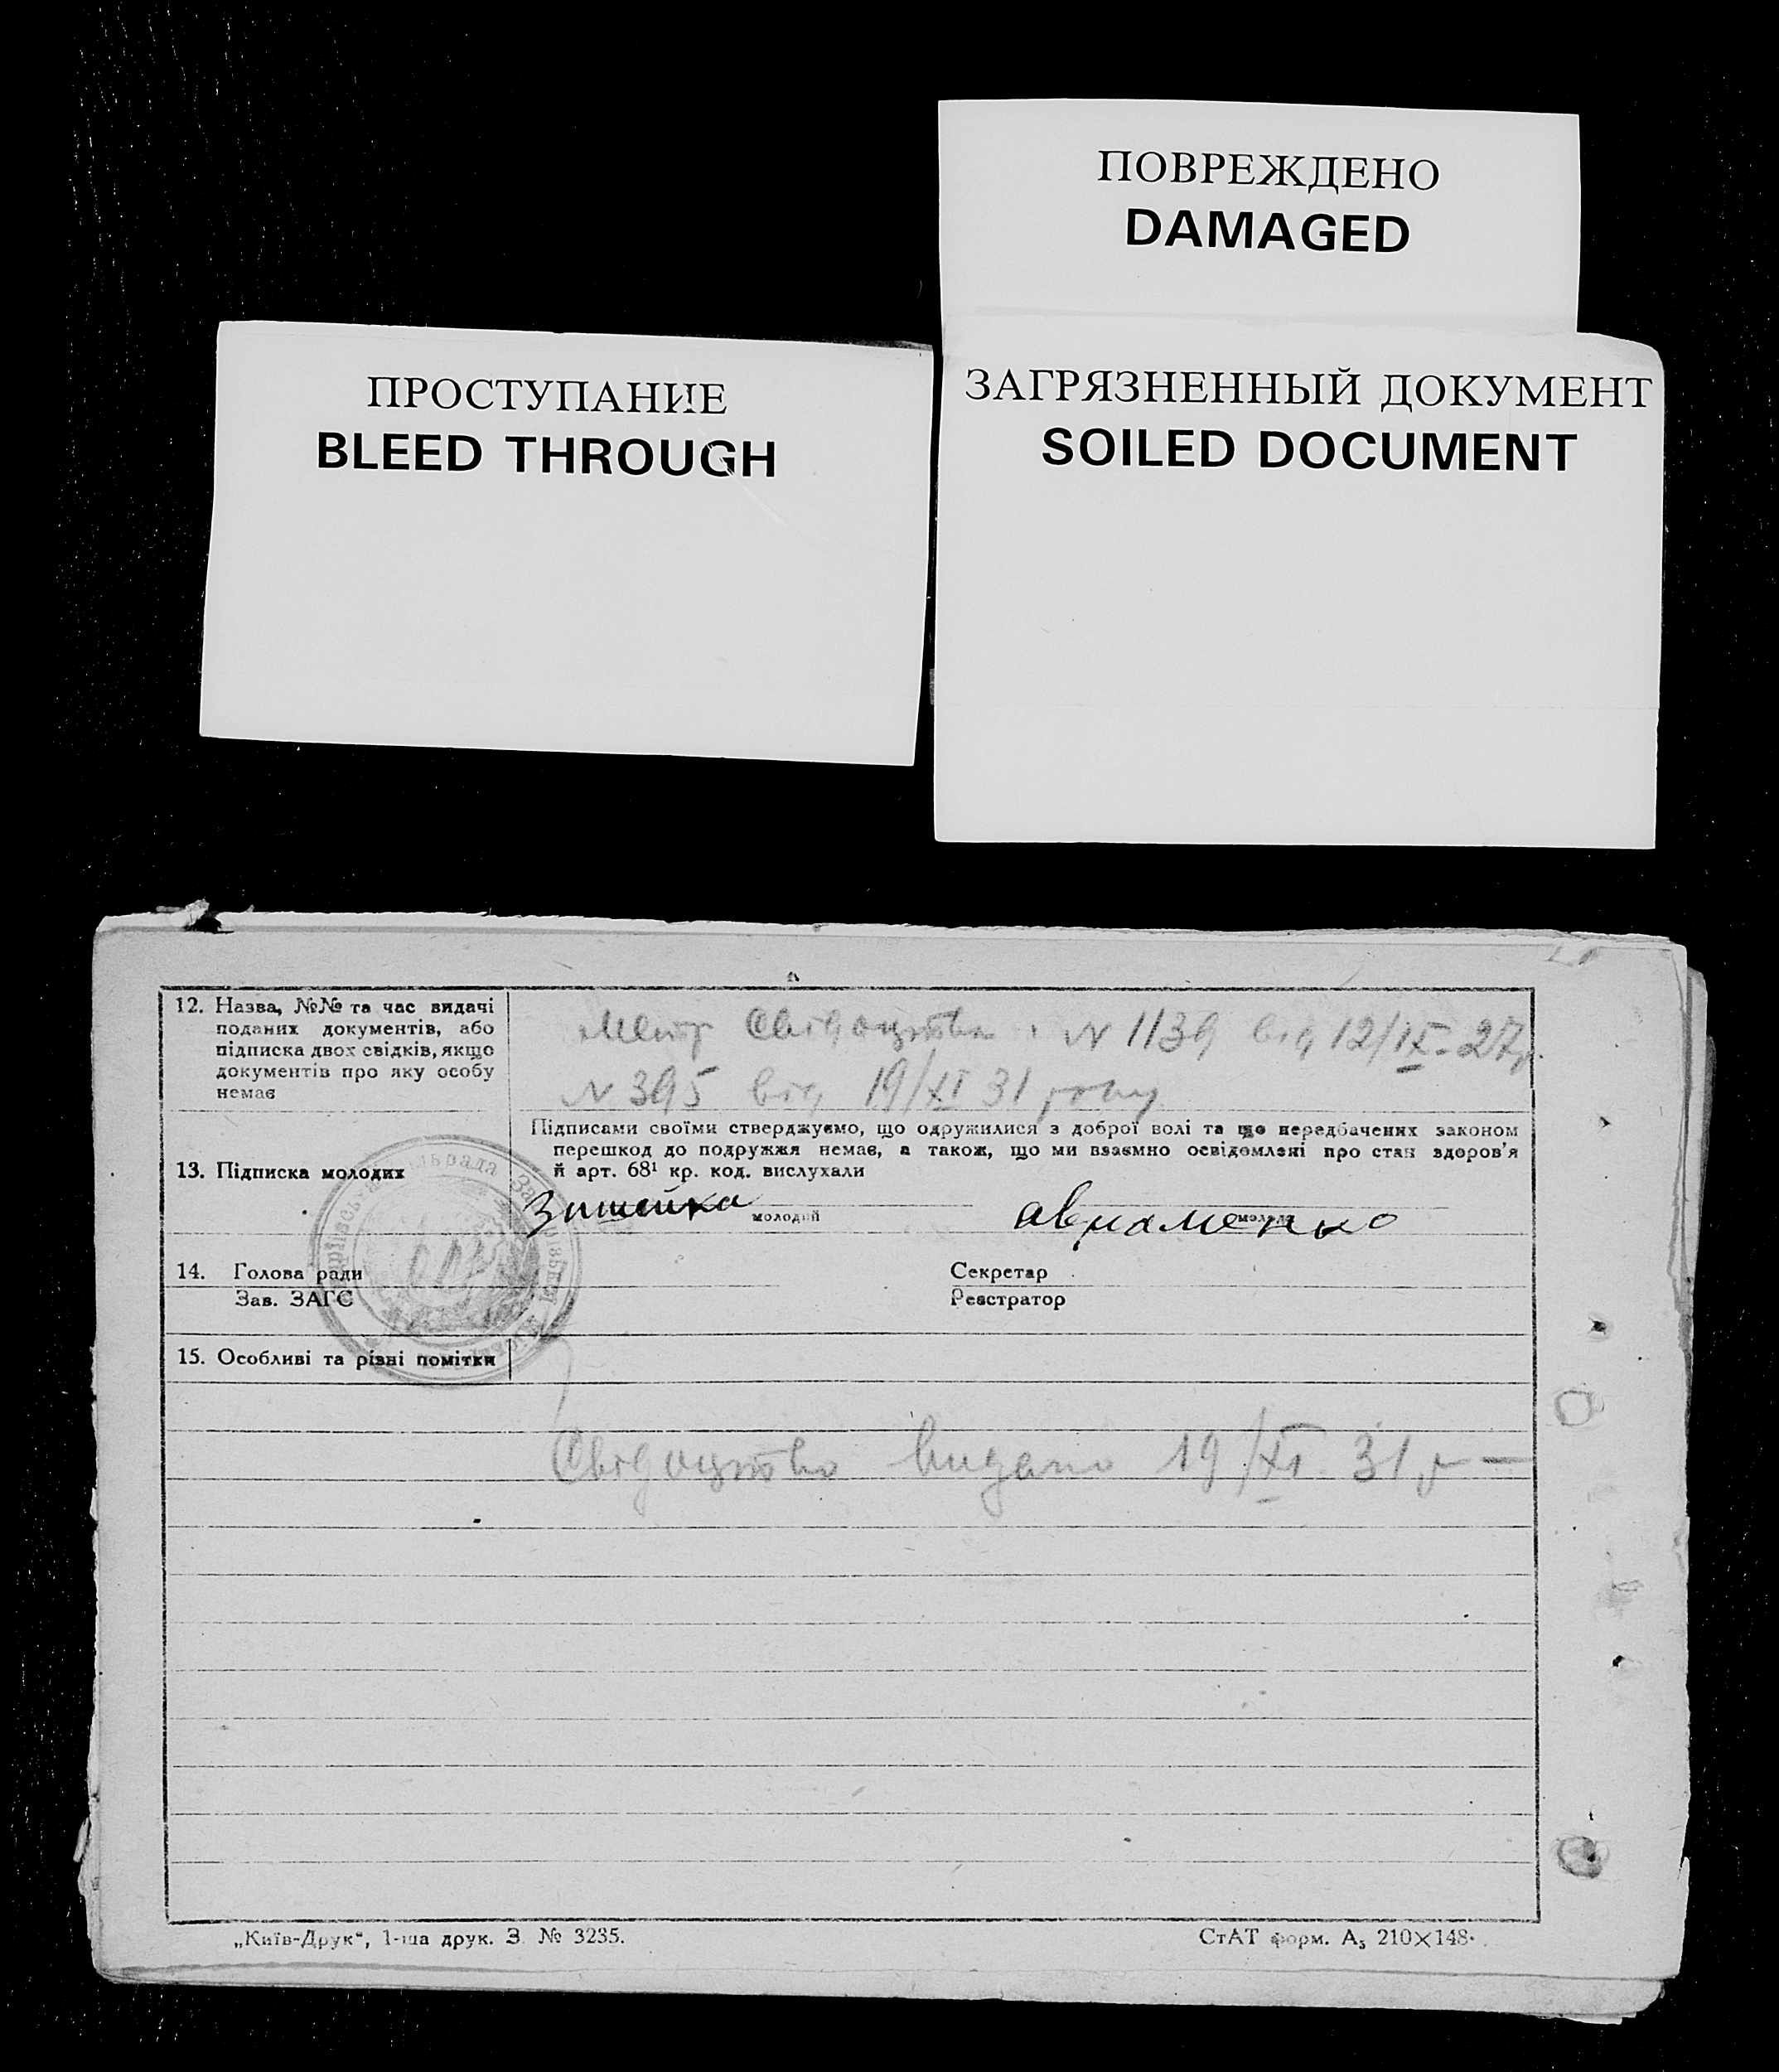 ПОВРЕЖДЕНО
DAMAGED
ПРОСТУПАНИЕ
BLEED THROUGH
ЗАГРЯЗНЕННЫЙ ДОКУМЕНТ
SOILED DOCUMENT
12. Назва, №№ та час видачі
поданих документів, або
підписка двох свідків, якщо
документів про яку особу
немає
Свідоцтва N 1139 від 12/IX-27р.
N 395 від 19/XI 31 року
Підписами своїми стверджуємо, що одружилися з доброї волі та що передбачених законом
перешкод до подружжя немає, а також, що ми взаємно освідомлені про стан здоров'я
й арт. 68¹ кр. код. вислухали
13. Підписка молодих
молодий
молода
авраменко
14. Голова ради
Зав. ЗАГС
Секретар
Реєстратор
15. Особливі та різні помітки
Свідоцтво видано 19/XI 31 р —
„Київ-Друк“, 1-ша друк. З. № 3235.
СтАТ форм. А₅ 210×148.